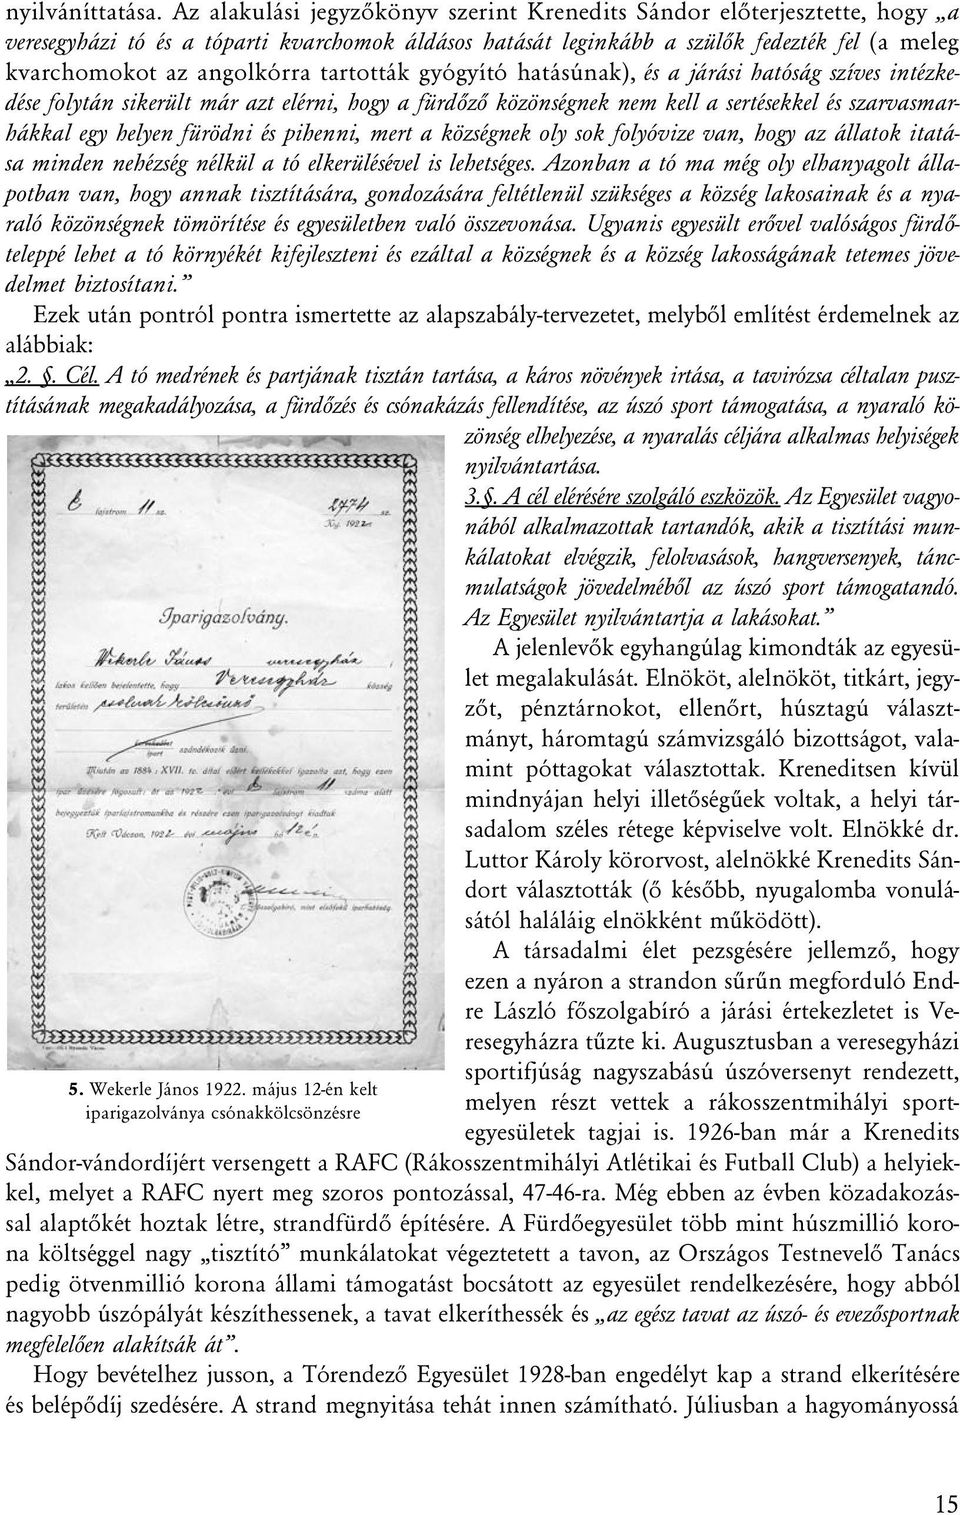 nyilváníttatása. Az alakulási jegyzőkönyv szerint Krenedits Sándor előterjesztette, hogy „a
veresegyházi tó és a tóparti kvarchomok áldásos hatását leginkább a szülők fedezték fel (a meleg
kvarchomokot az angolkórra tartották gyógyító hatásúnak), és a járási hatóság szíves intézke-
dése folytán sikerült már azt elérni, hogy a fürdőző közönségnek nem kell a sertésekkel és szarvasmar-
hákkal egy helyen fürödni és pihenni, mert a községnek oly sok folyóvize van, hogy az állatok itatá-
sa minden nehézség nélkül a tó elkerülésével is lehetséges. Azonban a tó ma még oly elhanyagolt álla-
potban van, hogy annak tisztítására, gondozására feltétlenül szükséges a község lakosainak és a nya-
raló közönségnek tömörítése és egyesületben való összevonása. Ugyanis egyesült erővel valóságos fürdő-
teleppé lehet a tó környékét kifejleszteni és ezáltal a községnek és a község lakosságának tetemes jöve-
delmet biztosítani.”
Ezek után pontról pontra ismertette az alapszabály-tervezetet, melyből említést érdemelnek az
alábbiak:
„2. §. Cél. A tó medrének és partjának tisztán tartása, a káros növények irtása, a tavirózsa céltalan pusz-
tításának megakadályozása, a fürdőzés és csónakázás fellendítése, az úszó sport támogatása, a nyaraló kö-
zönség elhelyezése, a nyaralás céljára alkalmas helyiségek
nyilvántartása.
3.§. A cél elérésére szolgáló eszközök. Az Egyesület vagyo-
nából alkalmazottak tartandók, akik a tisztítási mun-
kálatokat elvégzik, felolvasások, hangversenyek, tánc-
mulatságok jövedelméből az úszó sport támogatandó.
Az Egyesület nyilvántartja a lakásokat.”
A jelenlevők egyhangúlag kimondták az egyesü-
let megalakulását. Elnököt, alelnököt, titkárt, jegy-
zőt, pénztárnokot, ellenőrt, húsztagú választ-
mányt, háromtagú számvizsgáló bizottságot, vala-
mint póttagokat választottak. Kreneditsen kívül
mindnyájan helyi illetőségűek voltak, a helyi tár-
sadalom széles rétege képviselve volt. Elnökké dr.
Luttor Károly körorvost, alelnökké Krenedits Sán-
dort választották (ő később, nyugalomba vonulá-
sától haláláig elnökként működött).
A társadalmi élet pezsgésére jellemző, hogy
ezen a nyáron a strandon sűrűn megforduló End-
re László főszolgabíró a járási értekezletet is Ve-
resegyházra tűzte ki. Augusztusban a veresegyházi
sportifjúság nagyszabású úszóversenyt rendezett,
melyen részt vettek a rákosszentmihályi sport-
egyesületek tagjai is. 1926-ban már a Krenedits
C lajstrom 11 sz. 2774 sz.
Kig. 1922.
Iparigazolvány.
Wekerle János veresegyház
lakos kellően bejelentette, hogy Veresegyház község
területén csolnak kölcsönző
kereskedést
ipart szándékozik űzni.
Miután az 1884 : XVII. tc. által előírt kellékekkel igazolta azt, hogy ezen
ipar űzésére jogosult: őt az 1922 évi C lajstrom 11 száma alatt
bejegyeztük iparlajstromunkba és részére ezen iparigazolványt kiadtuk
Kelt Vácon, 1922 évi május hó 12 én.
főszolgabíró, mint elsőfokú iparhatóság.
5. Wekerle János 1922. május 12-én kelt
iparigazolványa csónakkölcsönzésre
Sándor-vándordíjért versengett a RAFC (Rákosszentmihályi Atlétikai és Futball Club) a helyiek-
kel, melyet a RAFC nyert meg szoros pontozással, 47-46-ra. Még ebben az évben közadakozás-
sal alaptőkét hoztak létre, strandfürdő építésére. A Fürdőegyesület több mint húszmillió koro-
na költséggel nagy „tisztító” munkálatokat végeztetett a tavon, az Országos Testnevelő Tanács
pedig ötvenmillió korona állami támogatást bocsátott az egyesület rendelkezésére, hogy abból
nagyobb úszópályát készíthessenek, a tavat elkeríthessék és „az egész tavat az úszó- és evezősportnak
megfelelően alakítsák át”.
Hogy bevételhez jusson, a Tórendező Egyesület 1928-ban engedélyt kap a strand elkerítésére
és belépődíj szedésére. A strand megnyitása tehát innen számítható. Júliusban a hagyományossá
15